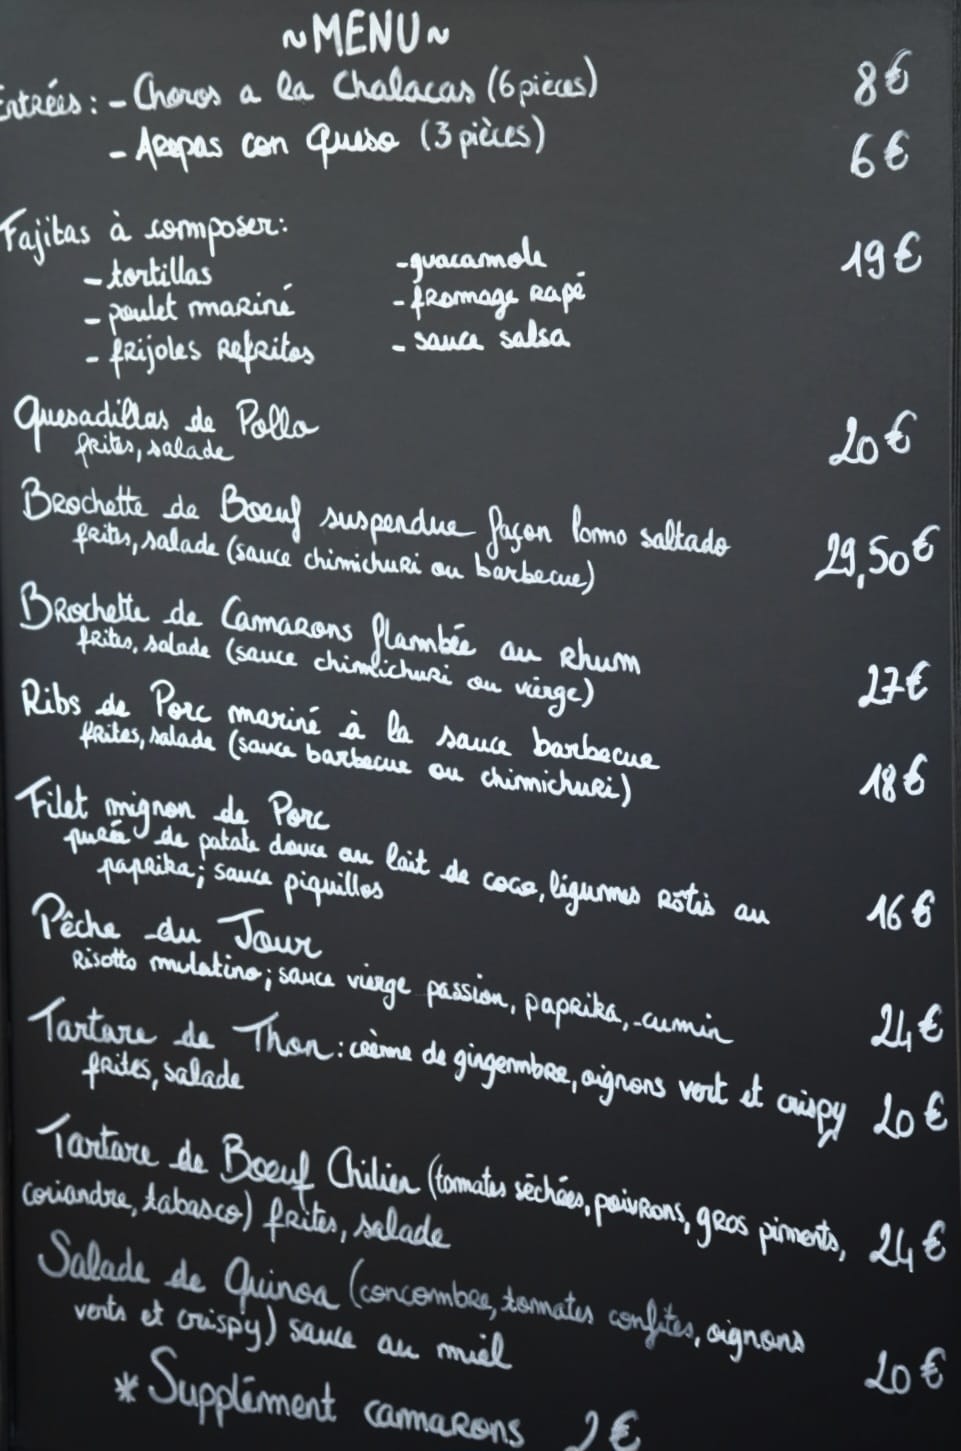 ~MENU~
Entrées : - Choros a la Chalacas (6 pièces) 8€
- Arepas con Queso (3 pièces) 6€
Fajitas à composer: 19€
- tortillas - guacamole
- poulet mariné - fromage rapé
- frijoles refritos - sauce salsa
Quesadillas de Pollo 20€
frites, salade
Brochette de Boeuf suspendue façon lomo saltado 29,50€
frites, salade (sauce chimichuri ou barbecue)
Brochette de Camarons flambée au rhum 27€
frites, salade (sauce chimichuri ou vierge)
Ribs de Porc mariné à la sauce barbecue 18€
frites, salade (sauce barbecue ou chimichuri)
Filet mignon de Porc
purée de patate douce au lait de coco, légumes rôtis au 16€
paprika; sauce piquillos
Pêche du Jour
Risotto mulatino; sauce vierge passion, paprika, cumin 24€
Tartare de Thon: crème de gingembre, oignons vert et crispy 20€
frites, salade
Tartare de Boeuf Chilien (tomates séchées, poivrons, gros piments, 24€
coriandre, tabasco) frites, salade
Salade de Quinoa (concombre, tomates confites, oignons
verts et crispy) sauce au miel 20€
* Supplément camarons 2€